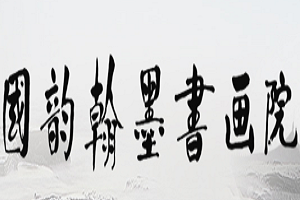 國韵翰墨書画院